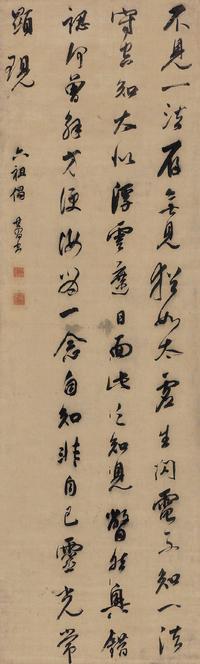 不見一法存無見猶如太虛生閃電不知一法
守空知大似浮雲遮日面此之知見瞥然興錯
認何曾解方便汝當一念自知非自己靈光常
顯現
六祖偈 其昌